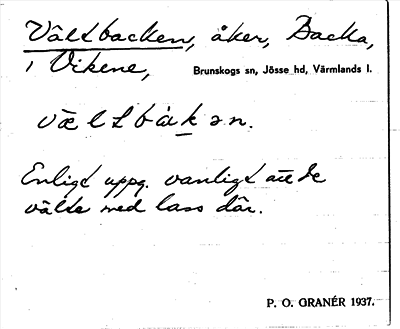 Vältbacken, åker, Backa,
i Vikene, Brunskogs sn, Jösse hd, Värmlands l.
væltbàkən.
Enligt uppg. vanligt att de
välte med lass där.
P. O. GRANÉR 1937.